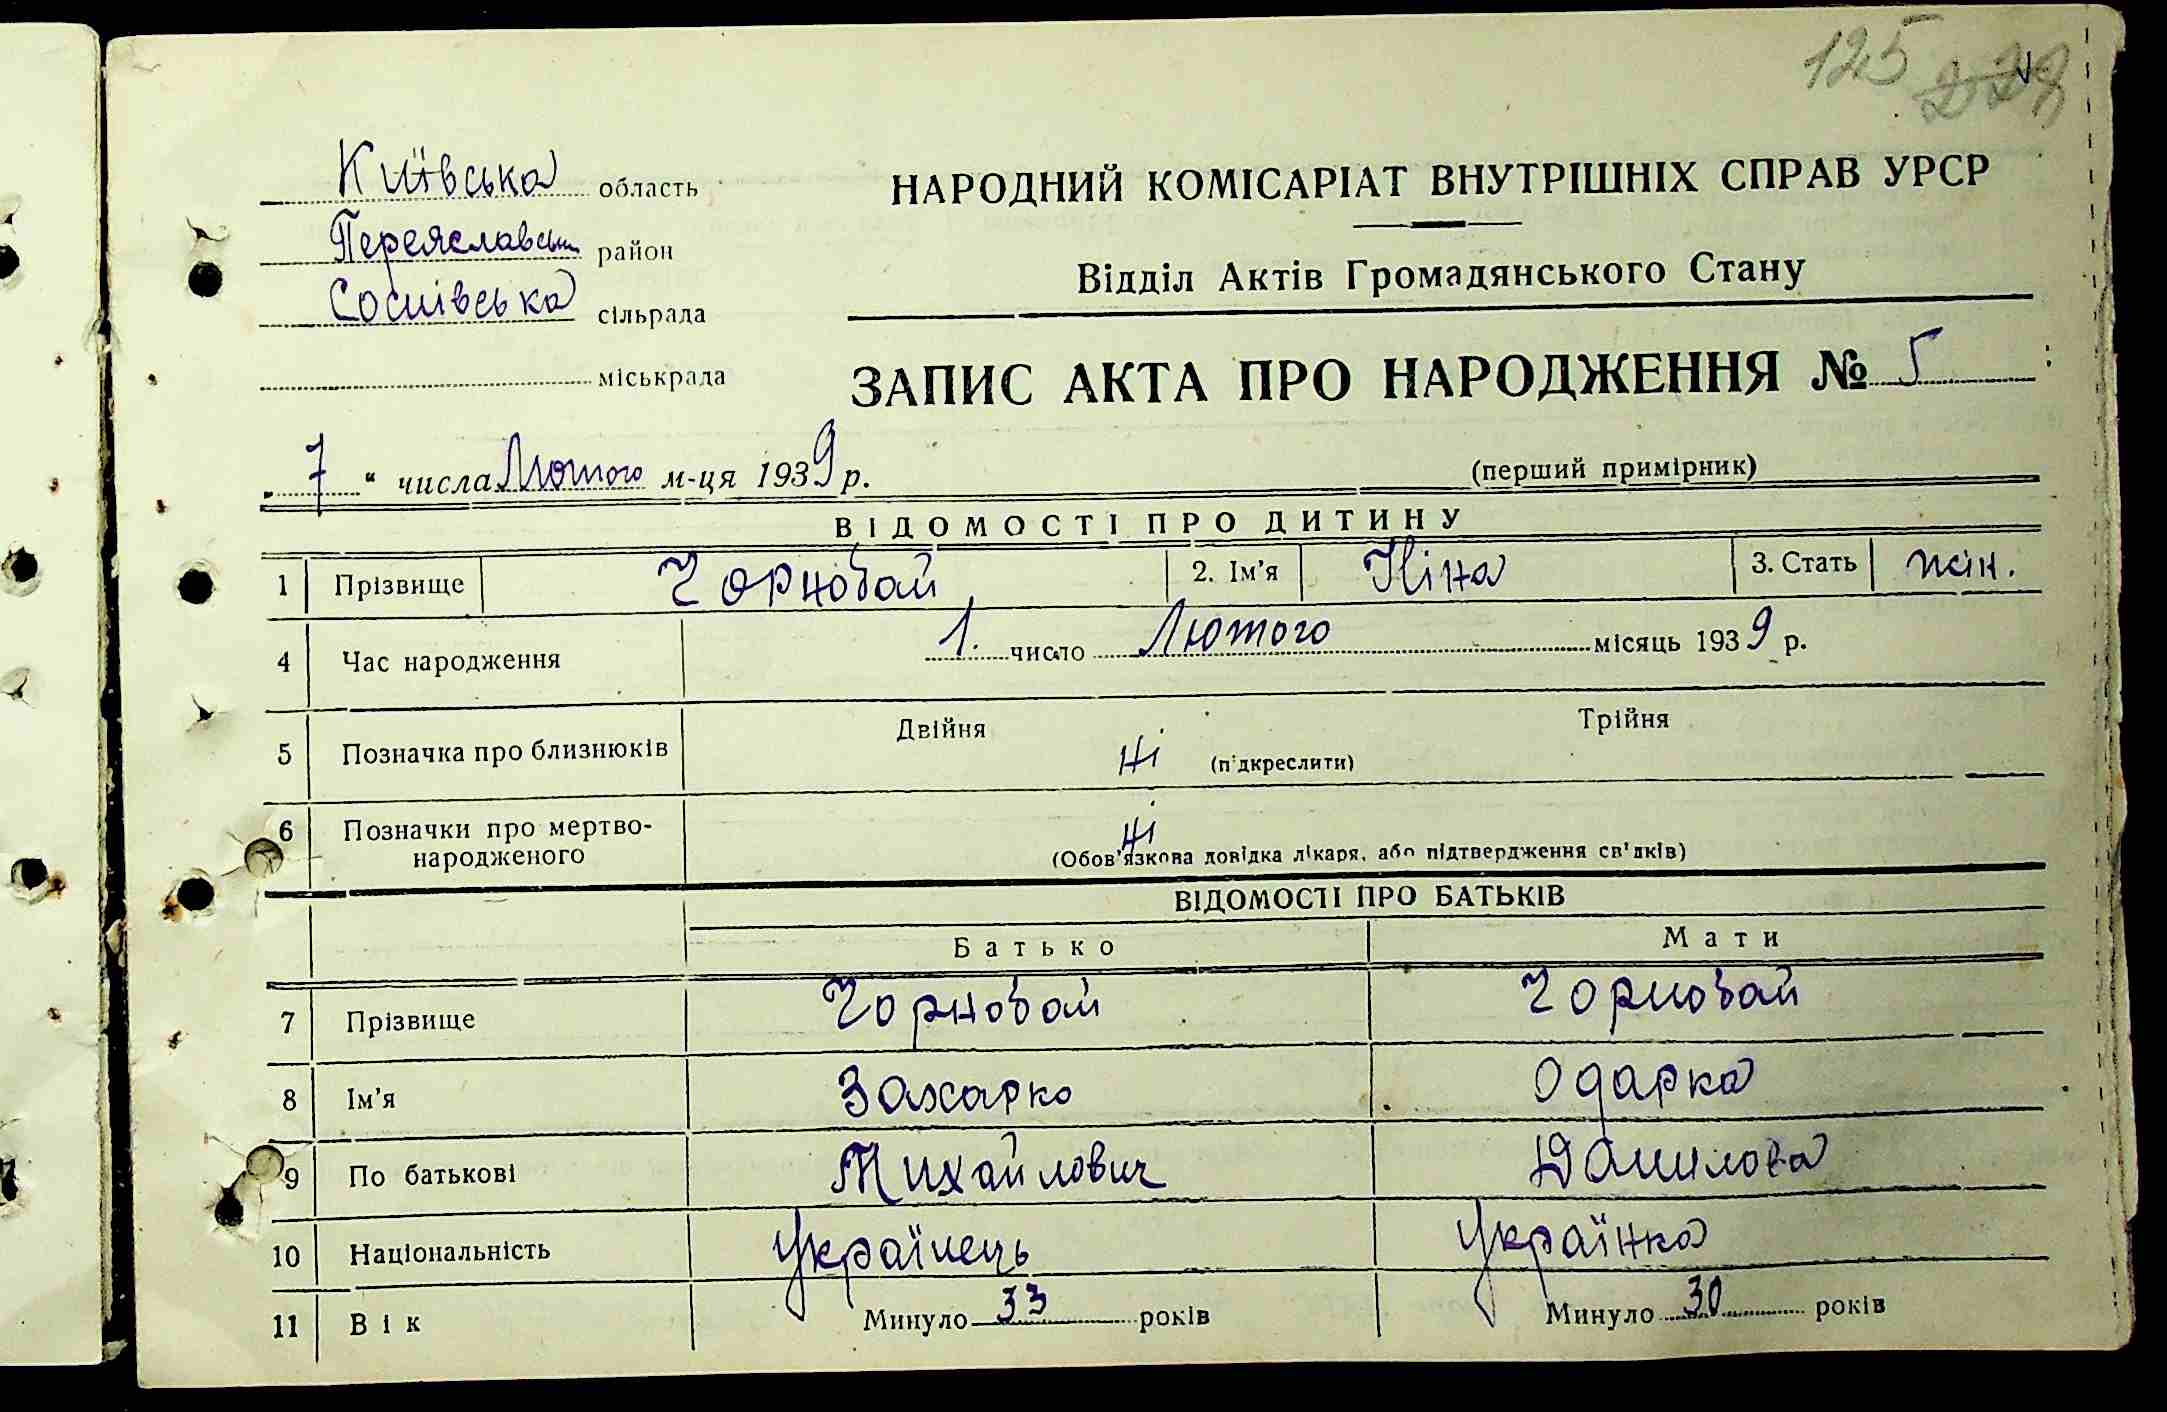 125
Київська область
НАРОДНИЙ КОМІСАРІАТ ВНУТРІШНІХ СПРАВ УРСР
Переяславськ район
Відділ Актів Громадянського Стану
Соснівська сільрада
міськрада
ЗАПИС АКТА ПРО НАРОДЖЕННЯ № 5
„ 7 “ числа Лютого м-ця 1939 р. (перший примірник)
ВІДОМОСТІ ПРО ДИТИНУ
1 Прізвище Чорнобай 2. Ім'я Ніна 3. Стать жін.
4 Час народження 1. число Лютого місяць 1939 р.
Двійня Трійня
5 Позначка про близнюків Ні (підкреслити)
6 Позначки про мертво-
народженого Ні
(Обов'язкова довідка лікаря, або підтвердження свідків)
ВІДОМОСТІ ПРО БАТЬКІВ
Батько Мати
7 Прізвище Чорнобай Чорнобай
8 Ім'я Захарко Одарка
9 По батькові Михайлович Данилова
10 Національність Українець Українка
11 Вік Минуло 33 років Минуло 30 років